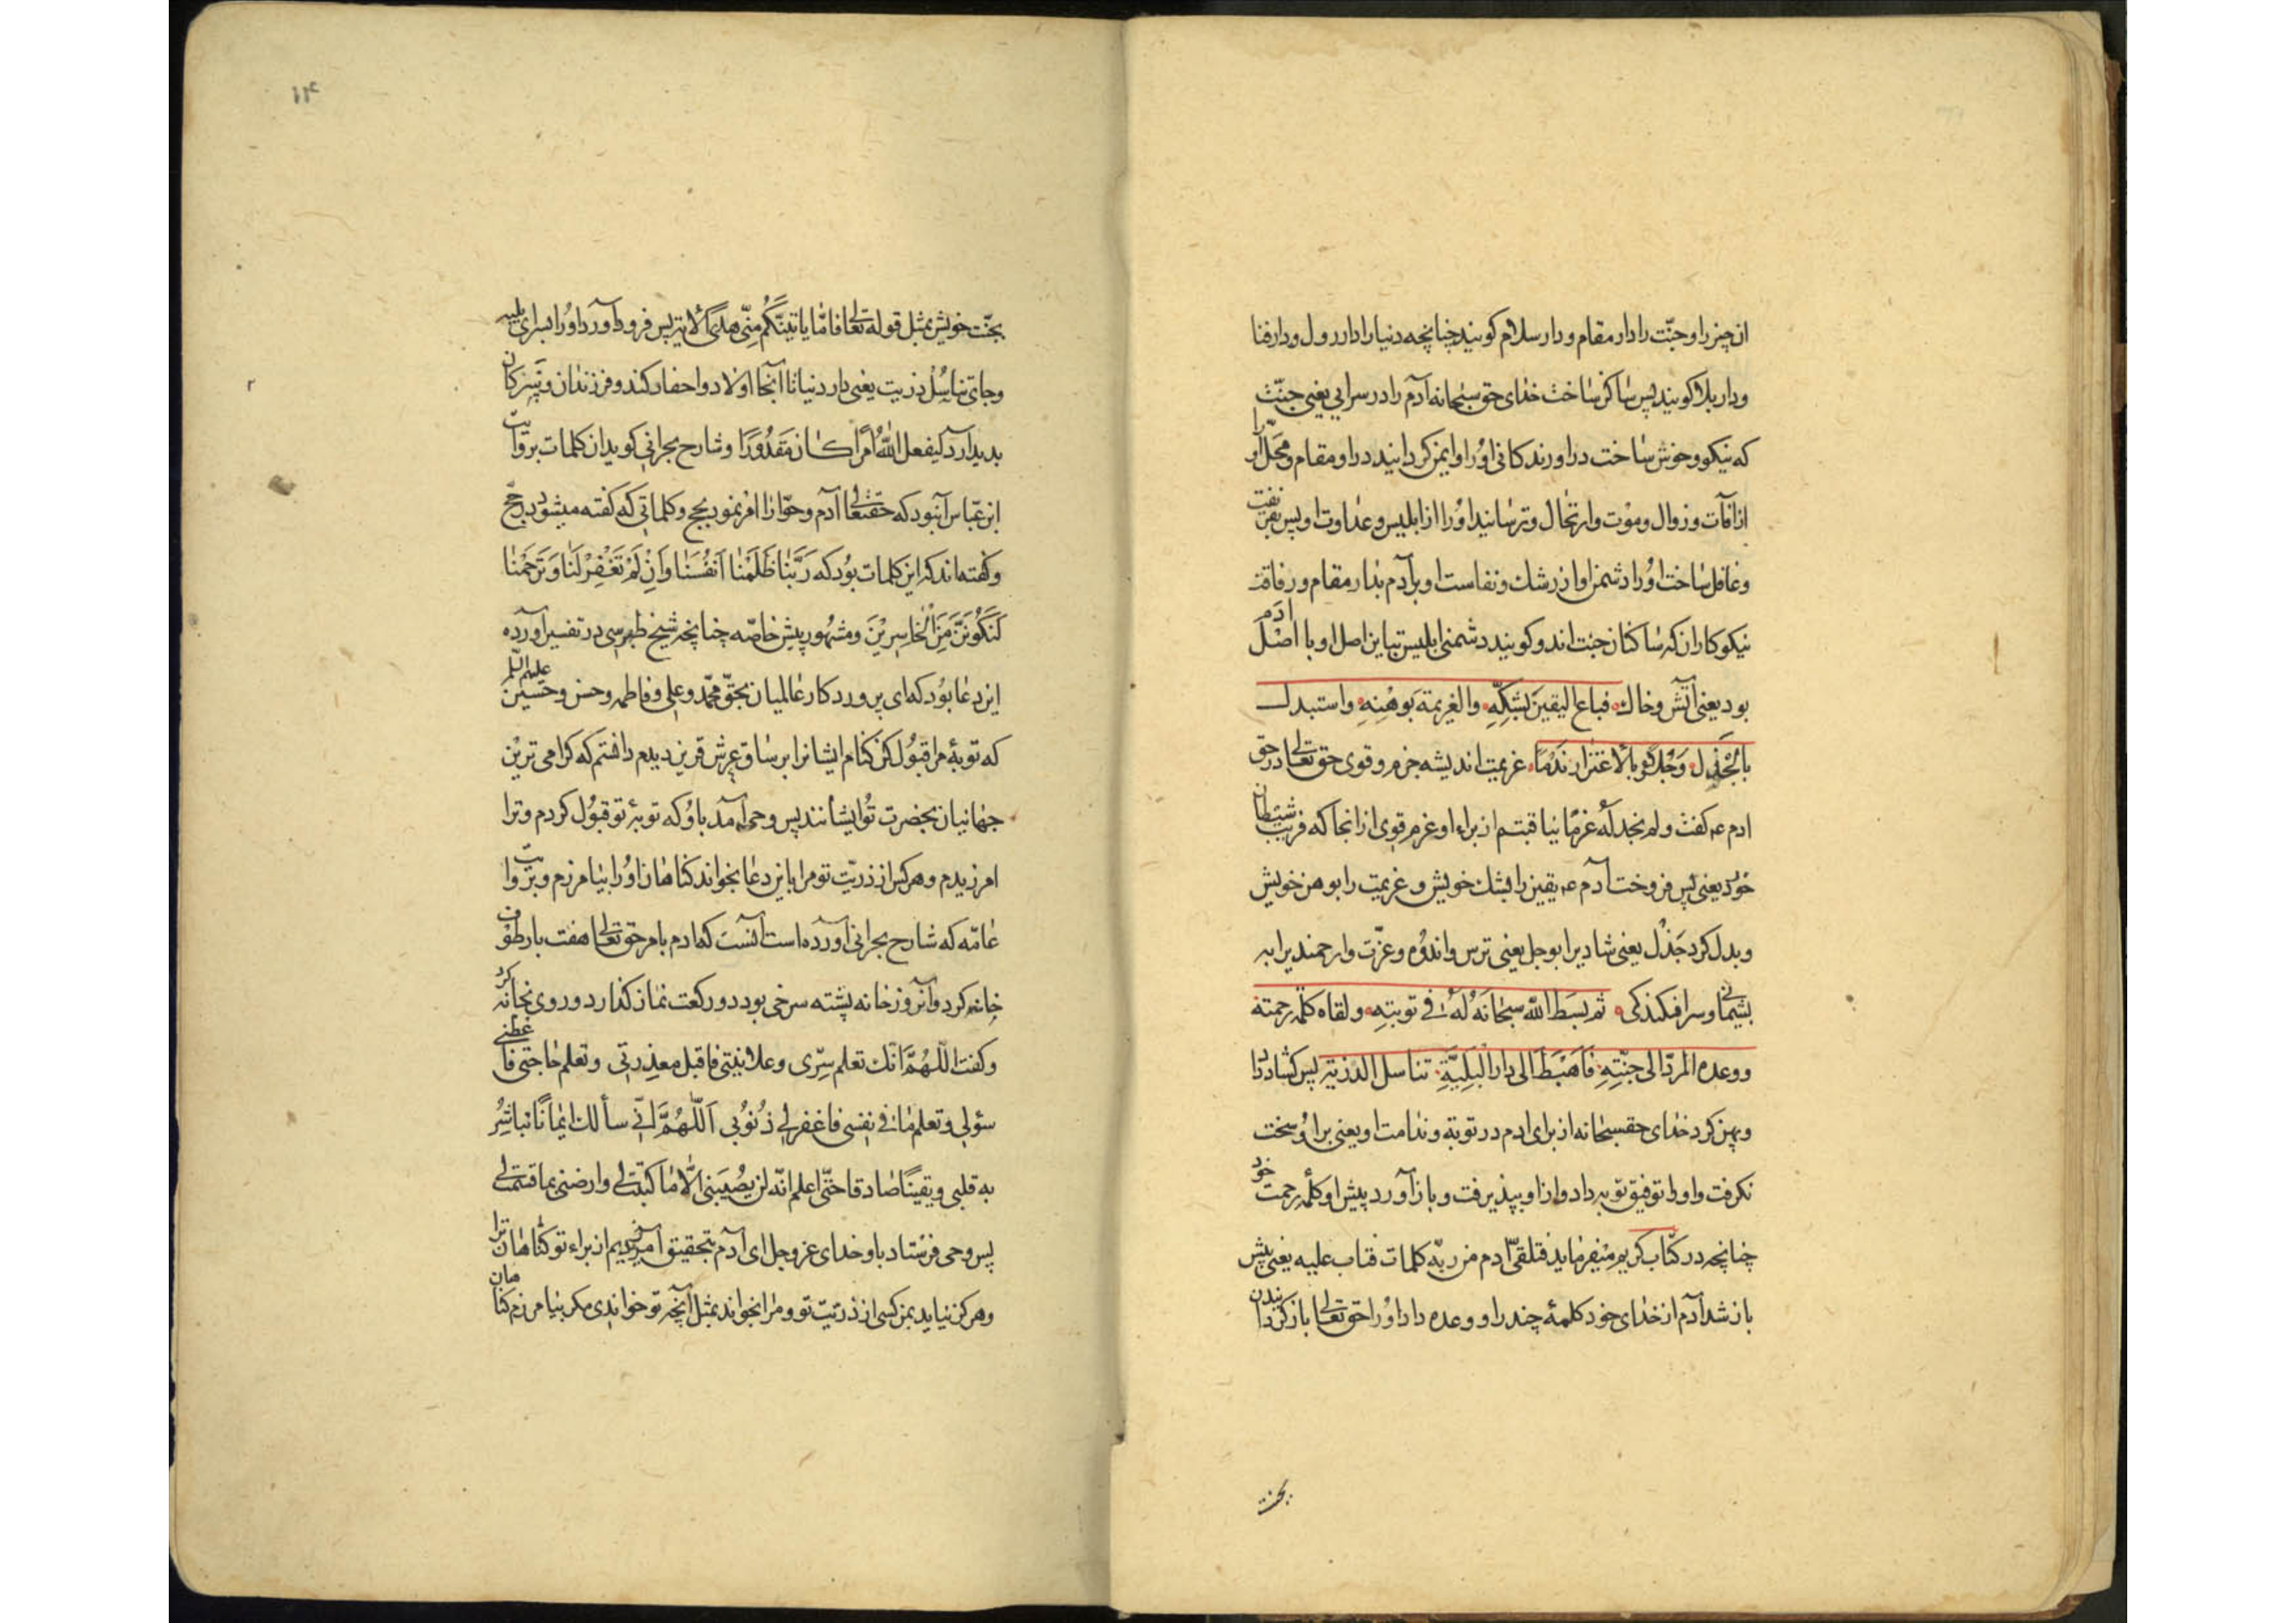 ان چیز را و جنّت را دار مقام و دار سلام کویند چنانچه دنیا را دار زول و دار فنا
و دار بلا کویند پس ساکن ساخت خدای حق سبحانه آدم را در سرایی یعنی جنّت
که نیکو و خوش ساخت در او زندکانی اورا و ایمن کردانید در او مقام و محلّ او را
از آفات و زوال و موْت و ارتحال و ترسانید اورا از ابلیس و عداوت او پس بفریفت
و غافل ساخت اورا دشمن او از رشك و نفاست او بر آدم بدار مقام و رفاقت
نیکوکاران که ساکنان جنت اند و کویند دشمنی ابلیس تباین اصل او با اصْل ادَم
بود یعنی آتش و خاك فباع الیقینَ بِشَکِّهِ والعزیمة بِوَهْنِهِ واستبدل
بالْجَذِل وَجَلا و بالاغترار نَدَمًا عزیمت اندیشه جزم و قوی حق تعالی در حق
ادم ع کفت ولم نجد لَه عَزمًا نیافتم از براء او عزم قوی از انجا که فریب شیطان
خورد یعنی پس فروخت آدم ع یقین را بشك خویش و عزیمت را بوهن خویش
و بدل کرد جَذْل یعنی شادیرا بوجل یعنی ترس و اندوُه و عزّت و ارجمندیرا به
پشیمانی و سرافکندکی ثم بسَطَ اللّه سبحانَهُ لَهُ فے توبتِهِ ولقاه کلمة رحمتة
ووعده المردّ الی جنّتِهِ فَاَهْبَطَ الی دار البَلِیَّةِ تناسل الذریّة پس کشاد داد
و پهن کرد خدای حقسبحانه از برای ادم در توبه و ندامت او یعنی بر او سخت
نکرفت و او را توفیق توبه داد و از او بپذیرفت و باز آورد پیش او کلمهٔ رحمت خود
چنانچه در کتاب کریم میفرماید فتلقیّ ادم من ربّه کلمات فتاب علیه یعنی پیش
باز شد آدم از خدای خود کلمهٔ چند را و وعده داد اورا حق تعالی باز کردانیدن
بجنت
۱۴
بجنّت خویش بمثل قوله تعالی فامّا یاتینّکُم مِنّی هدًی الایة پس فرود آورد اورا بسرای بلیه
و جای تناسُل ذریت یعنی دار دنیا تا آنجا اولاد و احفاد کند و فرزندان و پسرکان
بدید ارد کیفعل اللّهُ اَمراً کان مَقدُورًا و شارح بحرانی کوید ان کلمات بروایت
ابن عبّاس آنبود که حقتعالی آدم و حوّا را امر نمود بحج و کلماتی که کفته میشود در حج
و کفته‌اند که این کلمات بوُد که رَبَّنا ظَلَمْنا اَنفُسَنا وَاِنْ لَمْ تَغْفِرْ لَنا وَتَرحَمْنا
لَنَکُونَنَّ مِنَ الْخاسِرِیْنَ و مشهور پیش خاصّه چنانچه شیخ طبرسی در تفسیر آورده
این دعا بوُد که ای پروردکار عالمیان بحقّ محمّد و علی و فاطمه و حسن و حسین علیهم السّلم
که توبهٔ مرا قبُول کن کنام ایشانرا بر ساق عرش قرین دیدم دانستم که کرامی ترین
جهانیان بحضرت تُو ایشانند پس وحی آمد باو که توبهٔ تو قبُول کردم و ترا
امرزیدم و هر کس از ذریّت تو مرا باین دعا بخواند کناهان اورا بیامرزم و بروایت
عامّه که شارح بحرانی آورده است آنست که ادم بامر حق تعالی هفت بار طوْف
خانه کرد و آنروز خانه پشته سرخی بود دو رکعت نماز کذارد و روی بخانه کرد
و کفت اللّهُمَّ انّك تعلم سِرّی و علانیتی فاقبل معذرتی و تعلم حاجتی فاعطنی
سؤلی و تعلم ما فی نفسی فاغفر لی ذُنوُبی اَللّهُمَّ اِنّی سألك ایْمانًا تباشِرُ
به قلبی و یقینًا صادقا حتّی اعلم انّه لن یصُیبَنی الّا ما کتبت لی و ارضنی بما قسمت لی
پس وحی فرستاد باو خدای عزوجل ای آدم بتحقیق آمرزیدیم از براء تو کناهان ترا
و هرکز نیاید بمن کسی از ذریّت تو و مرا بخواند بمثل آنچه تو خواندی مکر بیامرزم کناهان